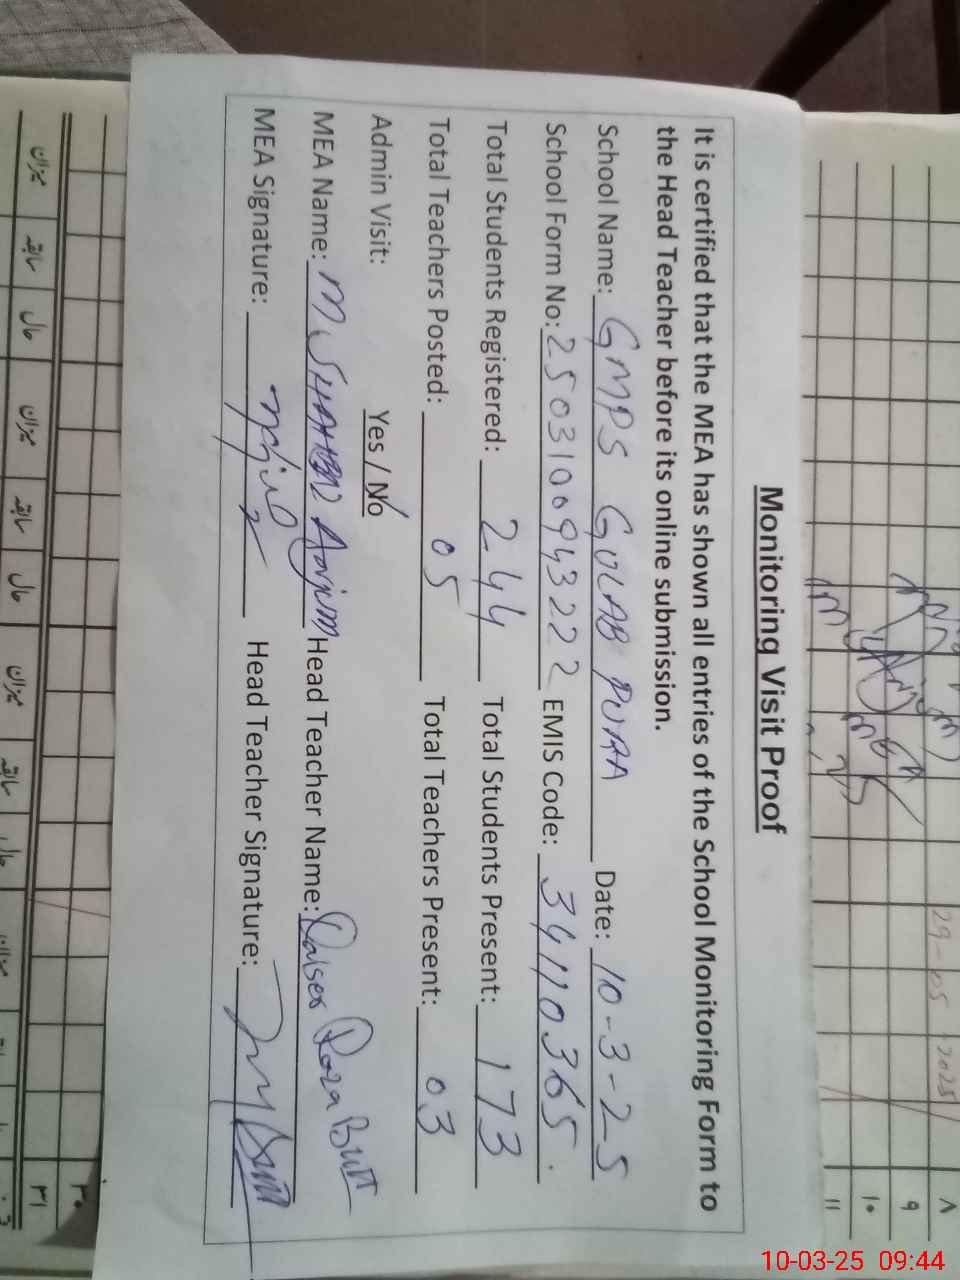 Monitoring Visit Proof
It is certified that the MEA has shown all entries of the School Monitoring Form to
the Head Teacher before its online submission.
School Name: GMPS GULAB PURA Date: 10-3-25
School Form No: 2503100943222 EMIS Code: 34110365.
Total Students Registered: 244 Total Students Present: 173
Total Teachers Posted: 05 Total Teachers Present: 03
Admin Visit: Yes / No
MEA Name: M. Head Teacher Name: Qaiser Raza Butt
MEA Signature: Head Teacher Signature: Butt
29-05-2025
۸
۹
۱۰
۱۱
۳۰
۳۱
میزان سابقہ حال میزان سابقہ حال میزان سابقہ حال میزان
10-03-25 09:44